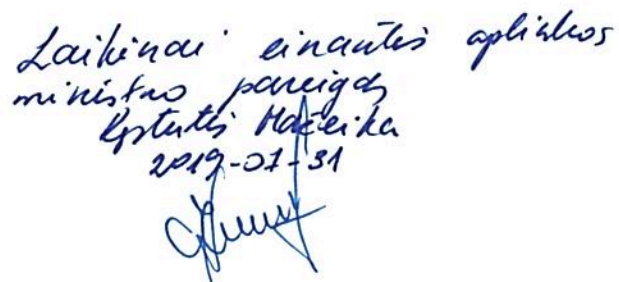 Laikinai einantis aplinkos
ministro pareigas
Kęstutis Mažeika
2019-07-31